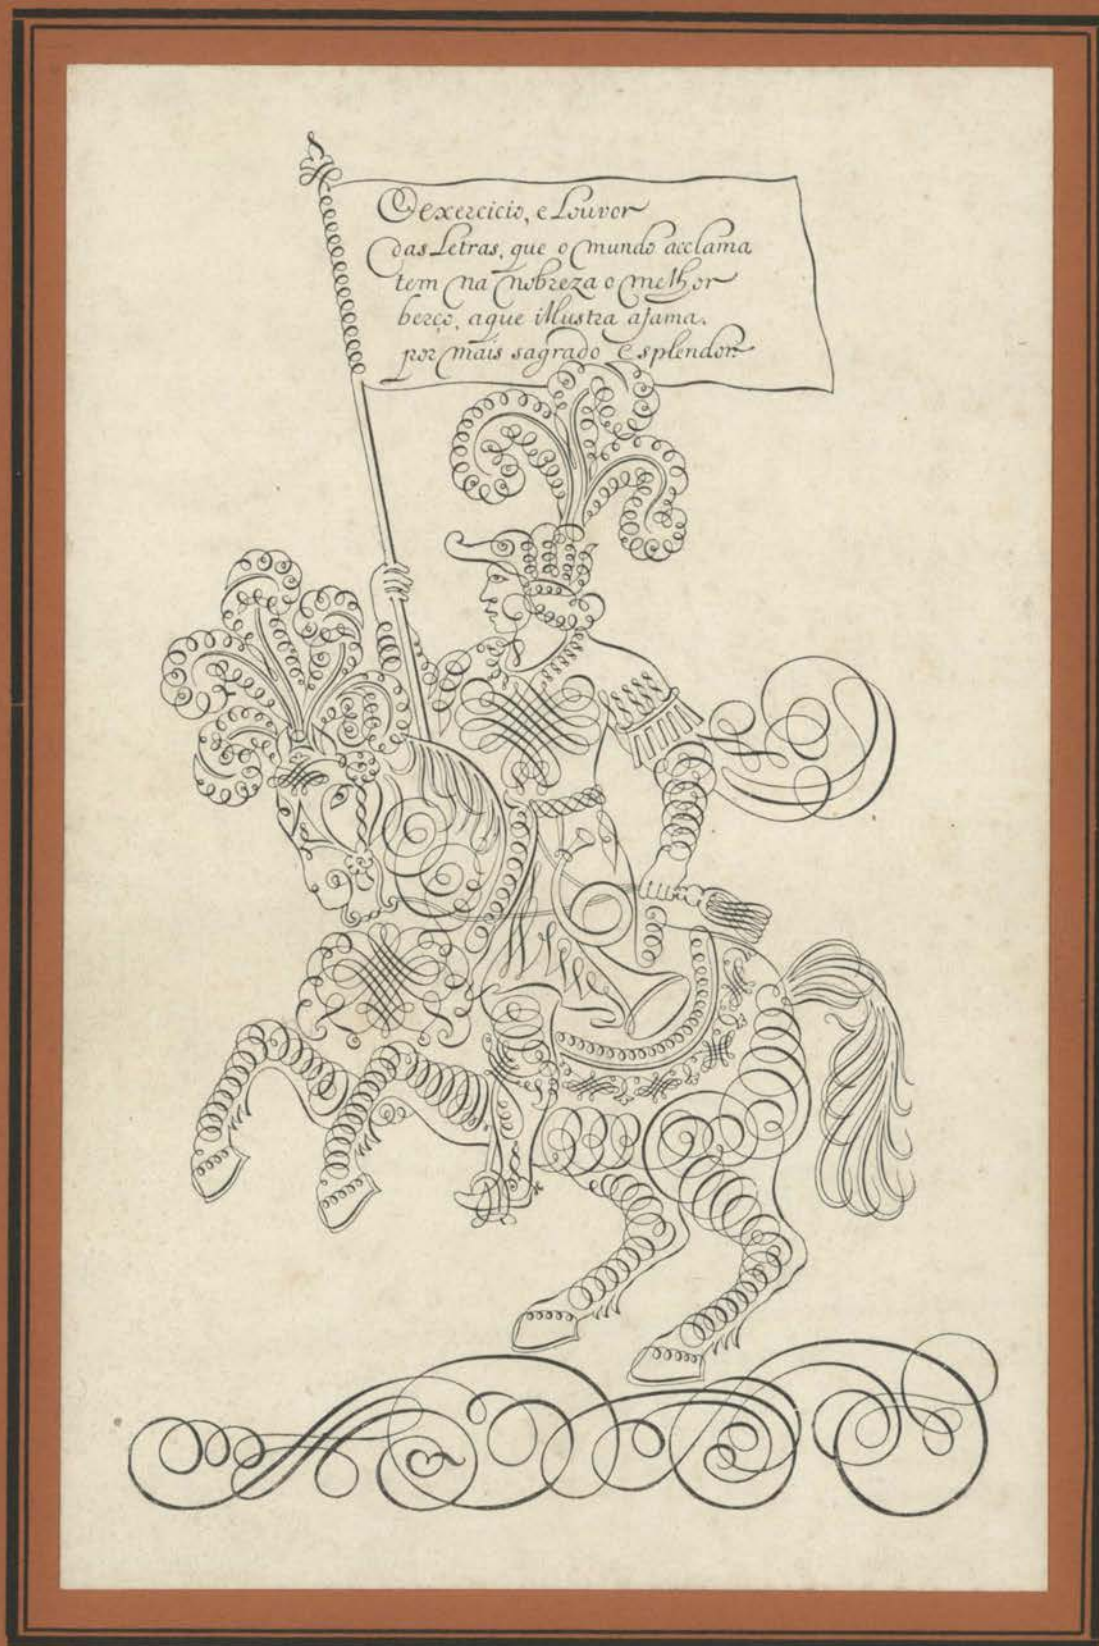 O exercicio, e Louvor
das Letras, que o mundo acclama
tem na nobreza o melhor
berço, aque illustra afama.
por mais sagrado esplendor.